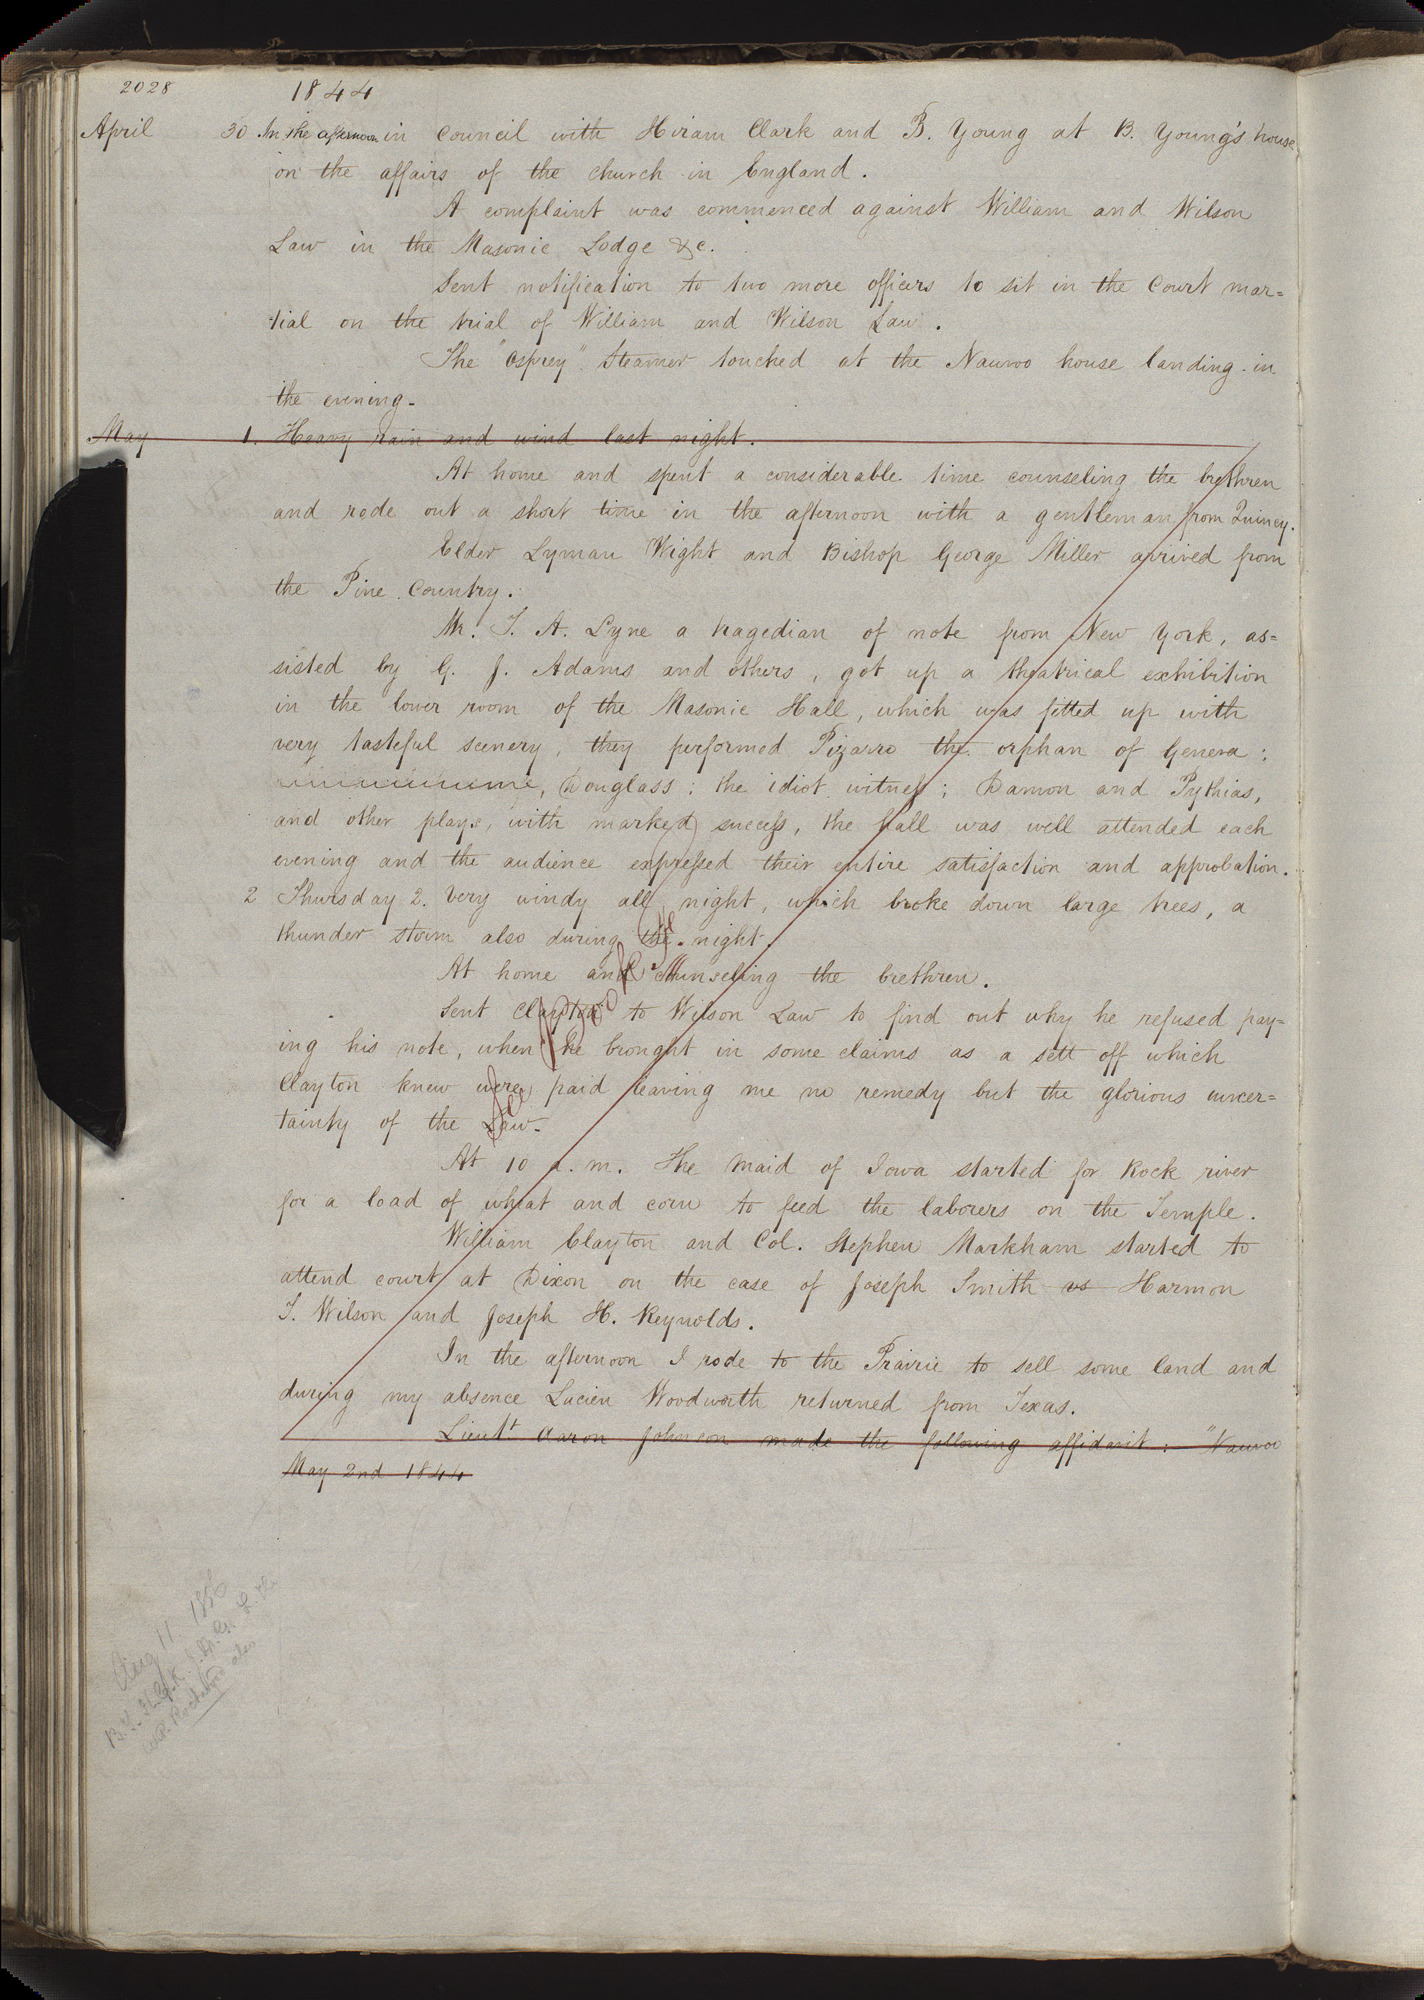 2028 1844
April 30 In the afternoon in council with Hiram Clark and B. Young at B. Young's house
on the affairs of the church in England.
A complaint was commenced against William and Wilson
Law in the Masonic Lodge &c.
Sent notification to two more officers to sit in the Court mar=
tial on the trial of William and Wilson Law.
The "Osprey" Steamer touched at the Nauvoo house landing in
the evening.
May 1. Heavy rain and wind last night.
At home and spent a considerable time counseling the brethren
and rode out a short time in the afternoon with a gentleman from Quincy.
Elder Lyman Wight and Bishop George Miller arrived from
the Pine Country.
Mr. T. A. Lyne a tragedian of note from New York, as=
sisted by G. J. Adams and others, got up a theatrical exhibition
in the lower room of the Masonic Hall, which was fitted up with
very tasteful scenery, they performed Pizarro the orphan of Geneva;
Douglass; the idiot witness; Damon and Pythias,
and other plays, with marked success, the hall was well attended each
evening and the audience expressed their entire satisfaction and approbation.
2 Thursday 2. Very windy all night, which broke down large trees, a
thunder storm also during the night.
At home and counseling the brethren.
Sent Clayton to Wilson Law to find out why he refused pay=
ing his note, when he brought in some claims as a sett off which
Clayton knew were paid leaving me no remedy but the glorious uncer=
tainty of the Law.
At 10 a.m. The Maid of Iowa started for Rock river
for a load of wheat and corn to feed the laborers on the Temple.
William Clayton and Col. Stephen Markham started to
attend court at Dixon on the case of Joseph Smith vs Harmon
T. Wilson and Joseph H. Reynolds.
In the afternoon I rode to the Prairie to sell some land and
during my absence Lucien Woodworth returned from Texas.
Lieut. Aaron Johnson made the following affidavit: "Nauvoo
May 2nd 1844
Aug 11. 1856